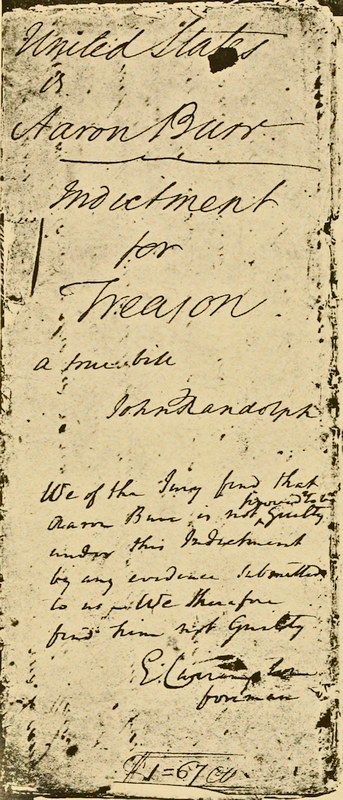 United States
vs
Aaron Burr
Indictment
for
Treason
a true bill
John Randolph
We of the Jury find that
Aaron Burr is not proved to be Guilty
under this Indictment
by any evidence submitted
to us. We therefore
find him not Guilty
E. Carrington
foreman